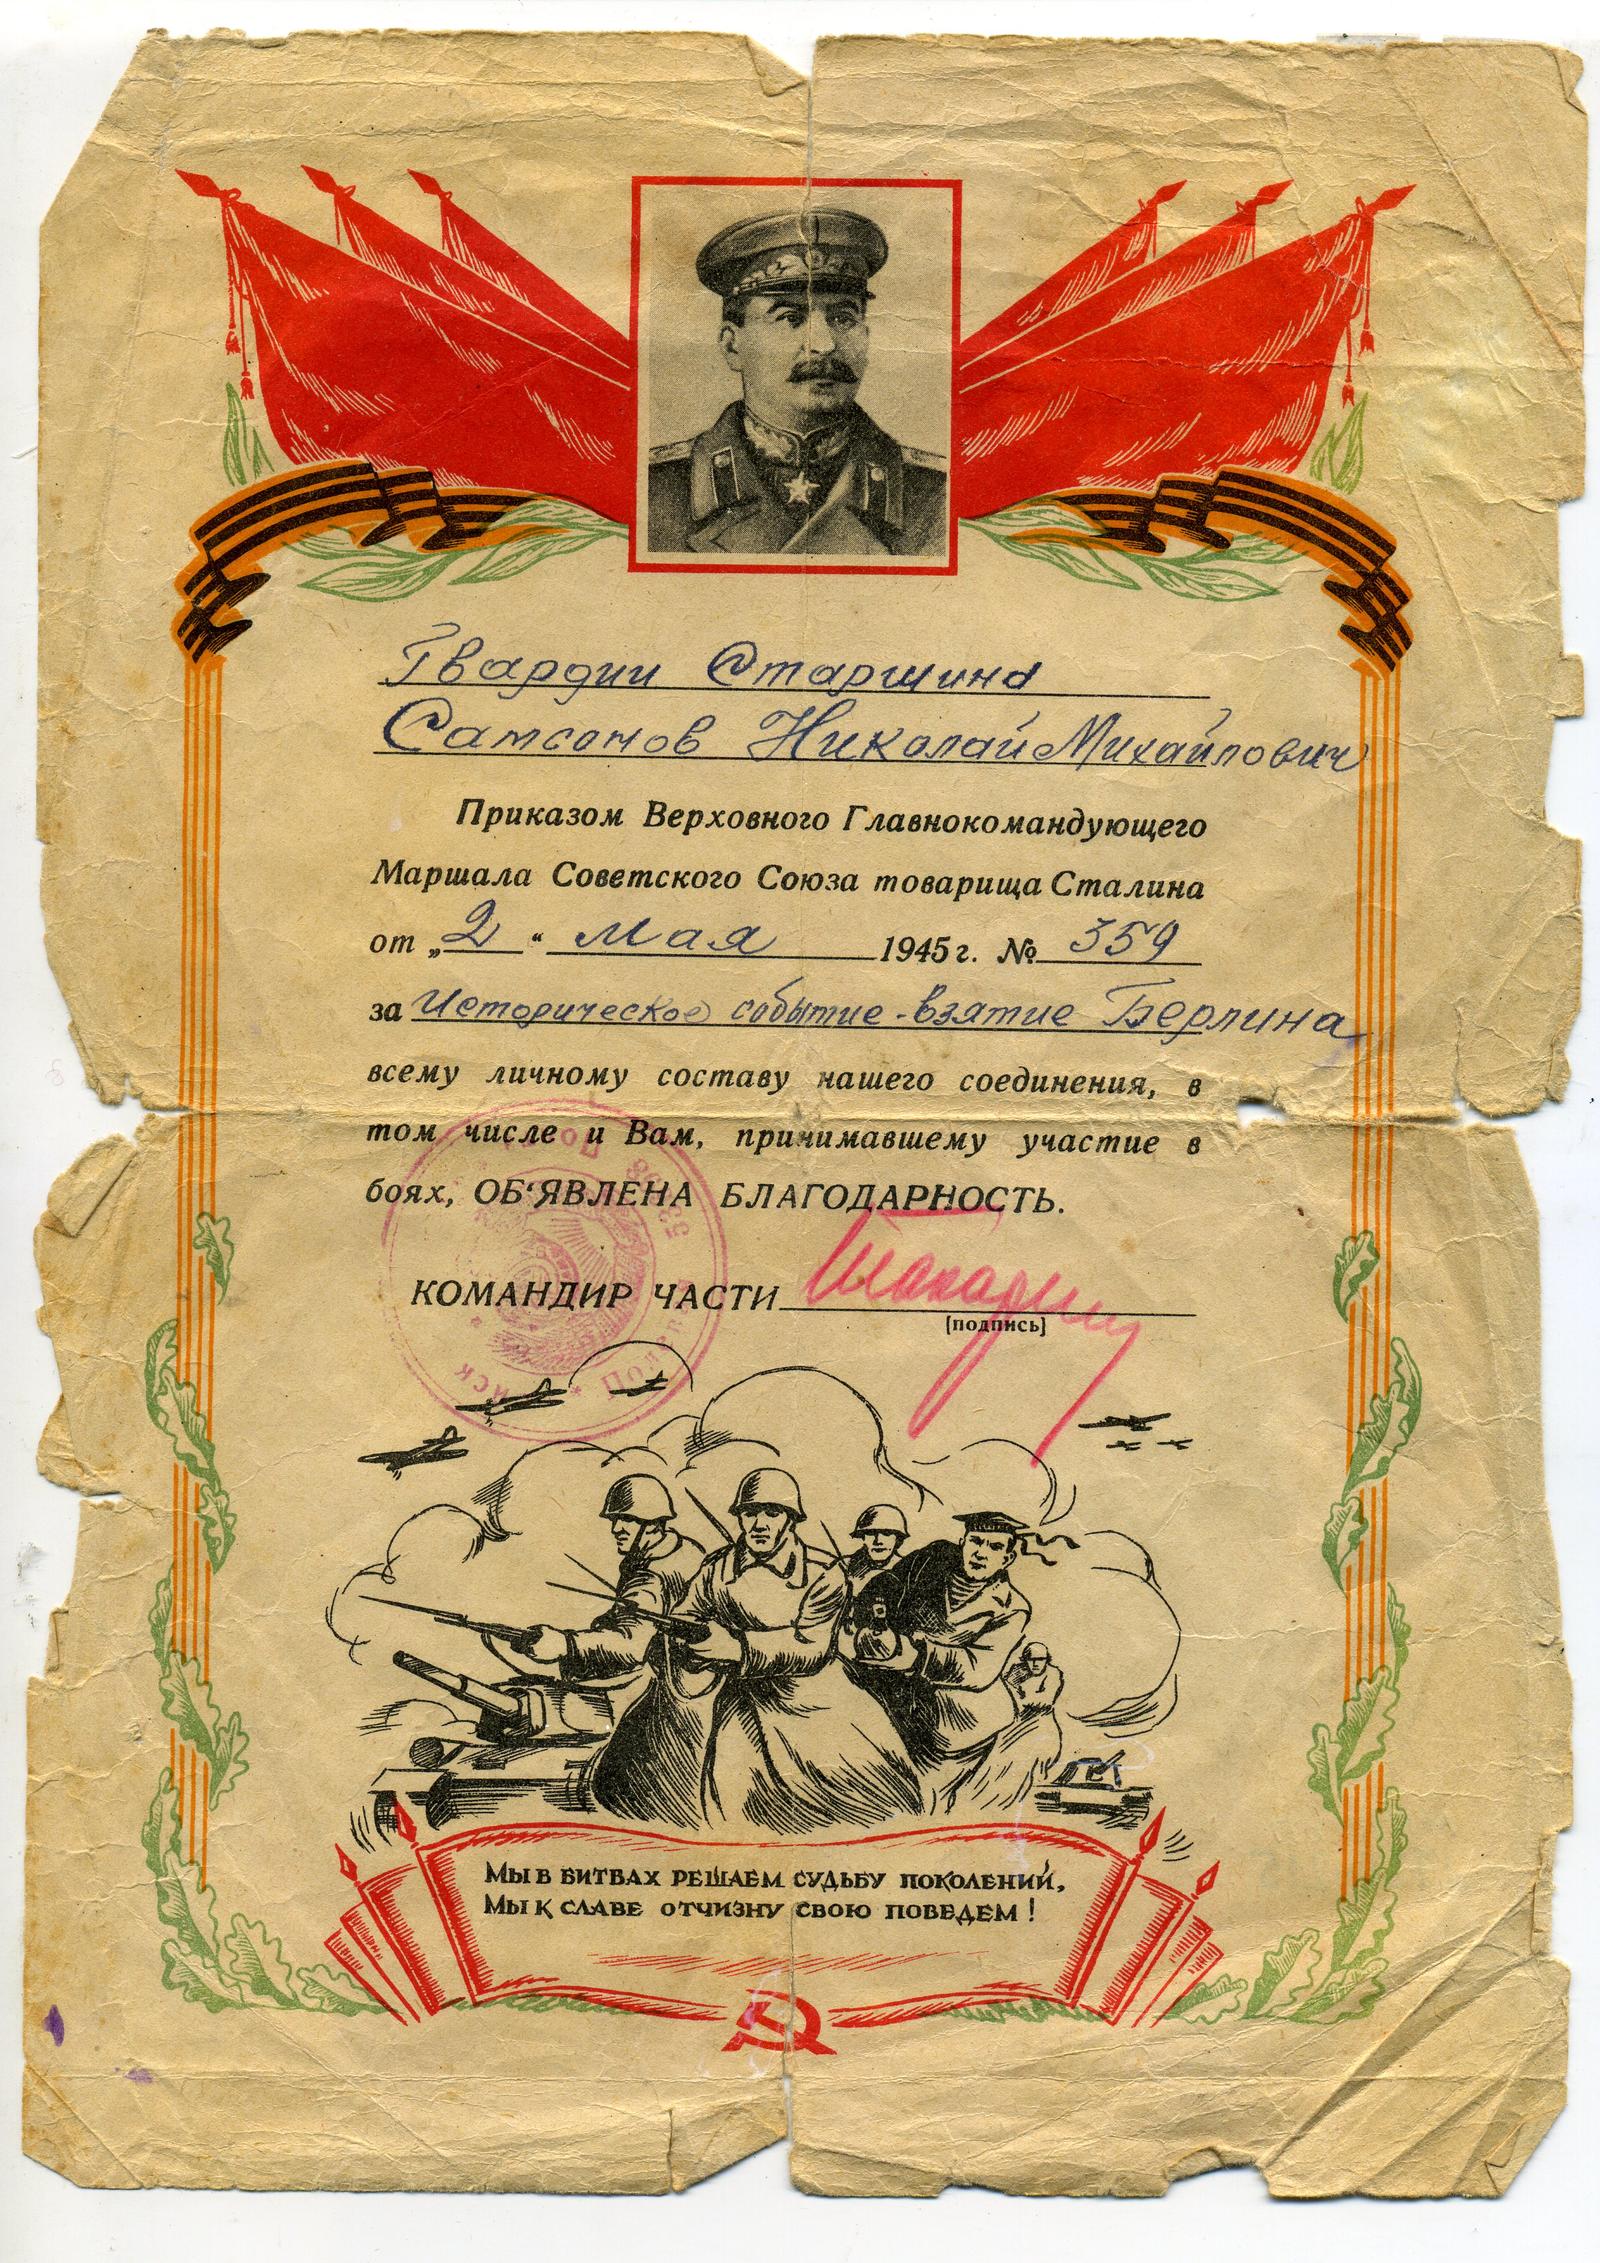 Гвардии Старшина
Самсонов Николай Михайлович
Приказом Верховного Главнокомандующего
Маршала Советского Союза товарища Сталина
от „2“ Мая 1945 г. № 359
за Историческое событие - взятие Берлина
всему личному составу нашего соединения, в
том числе и Вам, принимавшему участие в
боях, ОБ‘ЯВЛЕНА БЛАГОДАРНОСТЬ.
КОМАНДИР ЧАСТИ
[подпись]
МЫ В БИТВАХ РЕШАЕМ СУДЬБУ ПОКОЛЕНИЙ,
МЫ К СЛАВЕ ОТЧИЗНУ СВОЮ ПОВЕДЕМ!